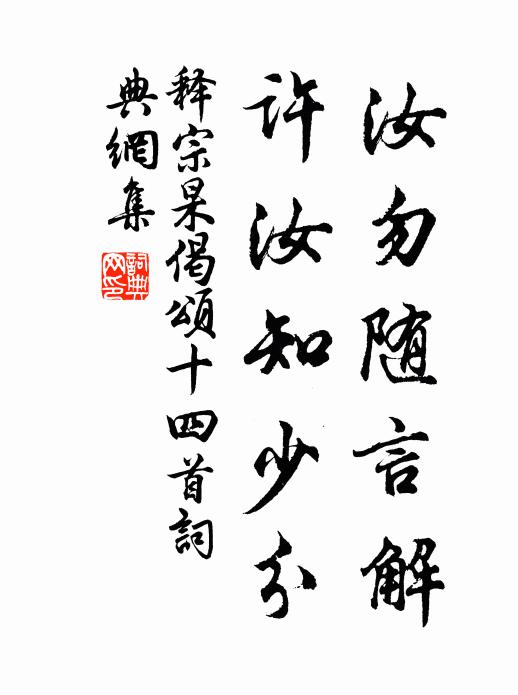 汝勿随言解
许汝知少分
释宗杲偈颂十四首詞
典網集
詞典
网印